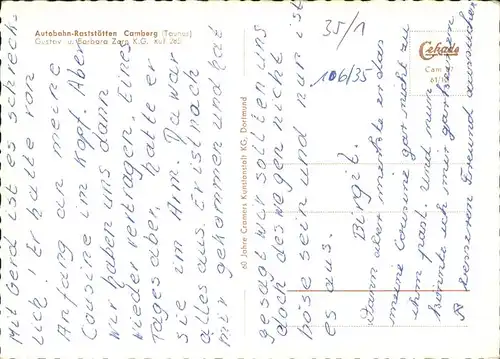 Autobahn-Raststätten Camberg (Taunus)
Gustav u. Barbara Zorn K.G. Ruf 285
Cekade
Cam
60 Jahre Cramers Kunstanstalt KG, Dortmund
35/1
106/35
Mit Gerd ist es schreck-
lich! Er hatte von
Anfang an meine
Cousine im Kopf. Aber
wir haben uns dann
wieder vertragen. Eines
Tages aber, hatte er
sie im Arm. Da war
alles aus. Er ist nach
mir gekommen und hat
gesagt wir sollten uns
doch deswegen nicht
böse sein und nur ist
es aus.
Birgit.
Dann aber merkte er das
meine Cousine gar nicht zu
ihm past. Und nun
könnte ich mir gar keinen
besseren Freund aussuchen